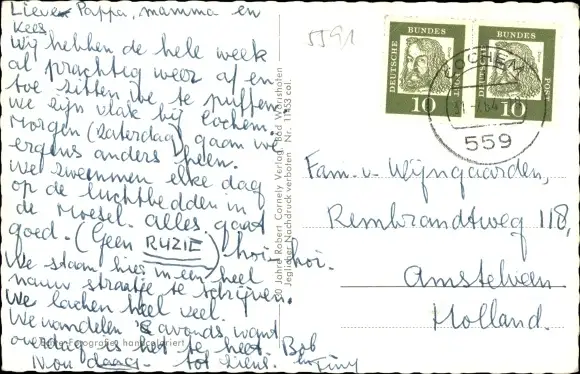 Lieve Pappa, mamma en
Kees
Wij hebben de hele week
al prachtig weer af en
toe zitten we te puffen
we zijn vlak bij Cochem.
Morgen (zaterdag) gaan we
ergens anders heen.
We zwemmen elke dag
op de luchtbedden in
de Moesel. alles gaat
goed. (Geen RUZIE) hoi-hoi.
We staan hier in een heel
nauw straatje te schrijven.
We lachen heel veel.
We wandelen 's avonds want
overdag is het te heet.
Nou daag - tot ziens. Bob
en Tiny
Echte Fotografie handcoloriert
Jahre Robert Cornely Verlag, Bad Wörishofen
Jeglicher Nachdruck verboten Nr. 11453 col
5591
DEUTSCHE BUNDES POST
10
DEUTSCHE BUNDES POST
10
COCHEM
559
Fam. v. Wijngaarden,
Rembrandtweg 118,
Amstelveen
Holland.